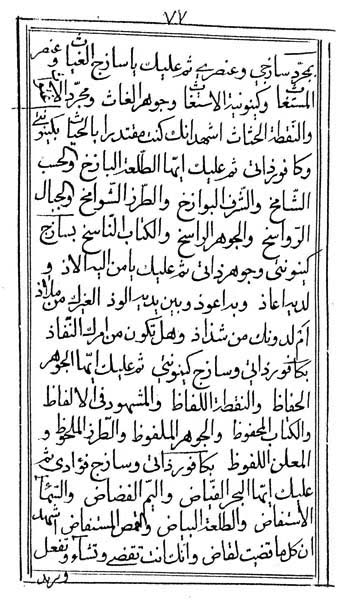 ٧٧
بمجرد ساذجي وعنصري ثم عليك يا ساذج الغياث وعنصر
المستغاث وكينونية الاستغاث وجوهر الغاث ومجرد
والنقطة الحثاث اشهد انك كنت مقتدرا بكينونيتي
وكافور ذاتي ثم عليك ايها الطلعة الباذخ والحسب
الشامخ والشرف البواذخ والطرز الشوامخ والجبال
الرواسخ والجوهر الراسخ والكتاب الناسخ بساذج
كينونتي وجوهر ذاتي ثم عليك يا من اليه الاذ و
لديه اعاذ وبه اعوذ وبين يديه الوذ الغيرك من ملاذ
ام لدونك من شذاذ وهل يكون من امرك النفاذ
بكافور ذاتي وساذج كينونيتي ثم عليك ايها الجوهر
الحفاظ والنقطة اللفاظ والمشهود في الالفاظ
والكتاب المحفوظ والجوهر الملفوظ والطرز الملحوظ و
المعلن اللفوظ بكافور ذاتي وساذج فؤادي ثم
عليك ايها البحر الفياض واليم الفضاض
الاستفاض والطلعة البياض والقمص المستفاض اشهد
ان كل ما قضيت لقاض وانك انت تقضي وتشاء وتفعل
وتريد